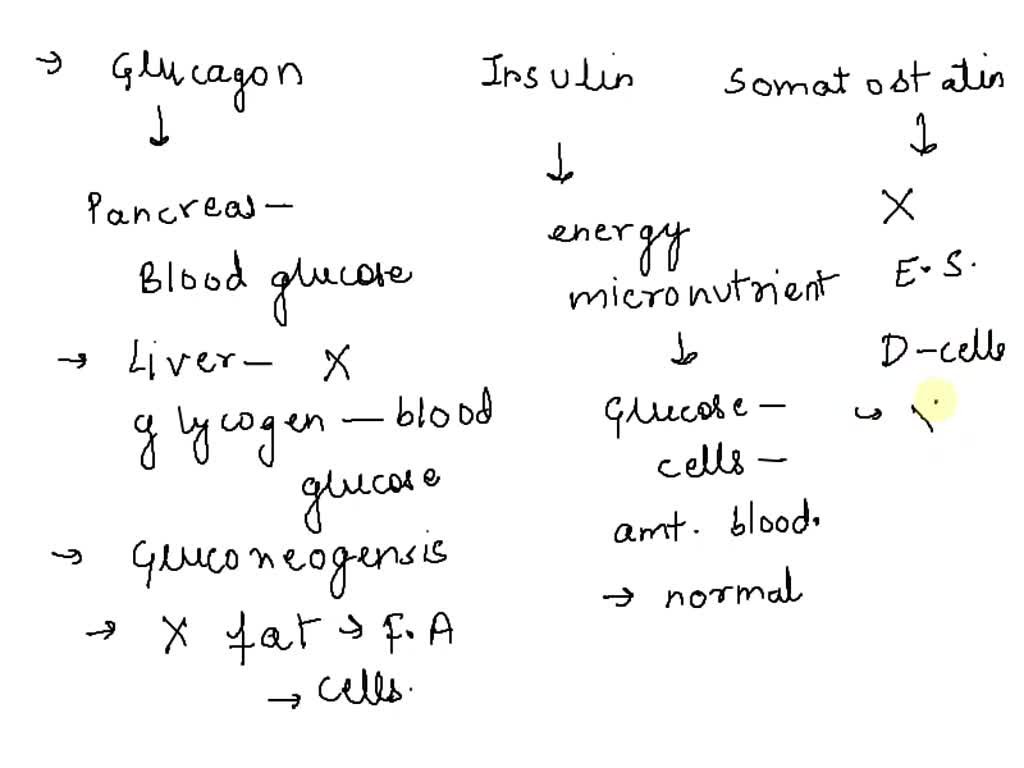 → Glucagon
↓
Pancreas –
Blood glucose
→ Liver – X
glycogen – blood
glucose
→ Gluconeogensis
→ X fat → F.A
→ cells.
Insulin
↓
energy
micronutrient
↓
Glucose –
cells –
amt. blood.
→ normal
Somatostatin
↓
X
E.S.
D-cells